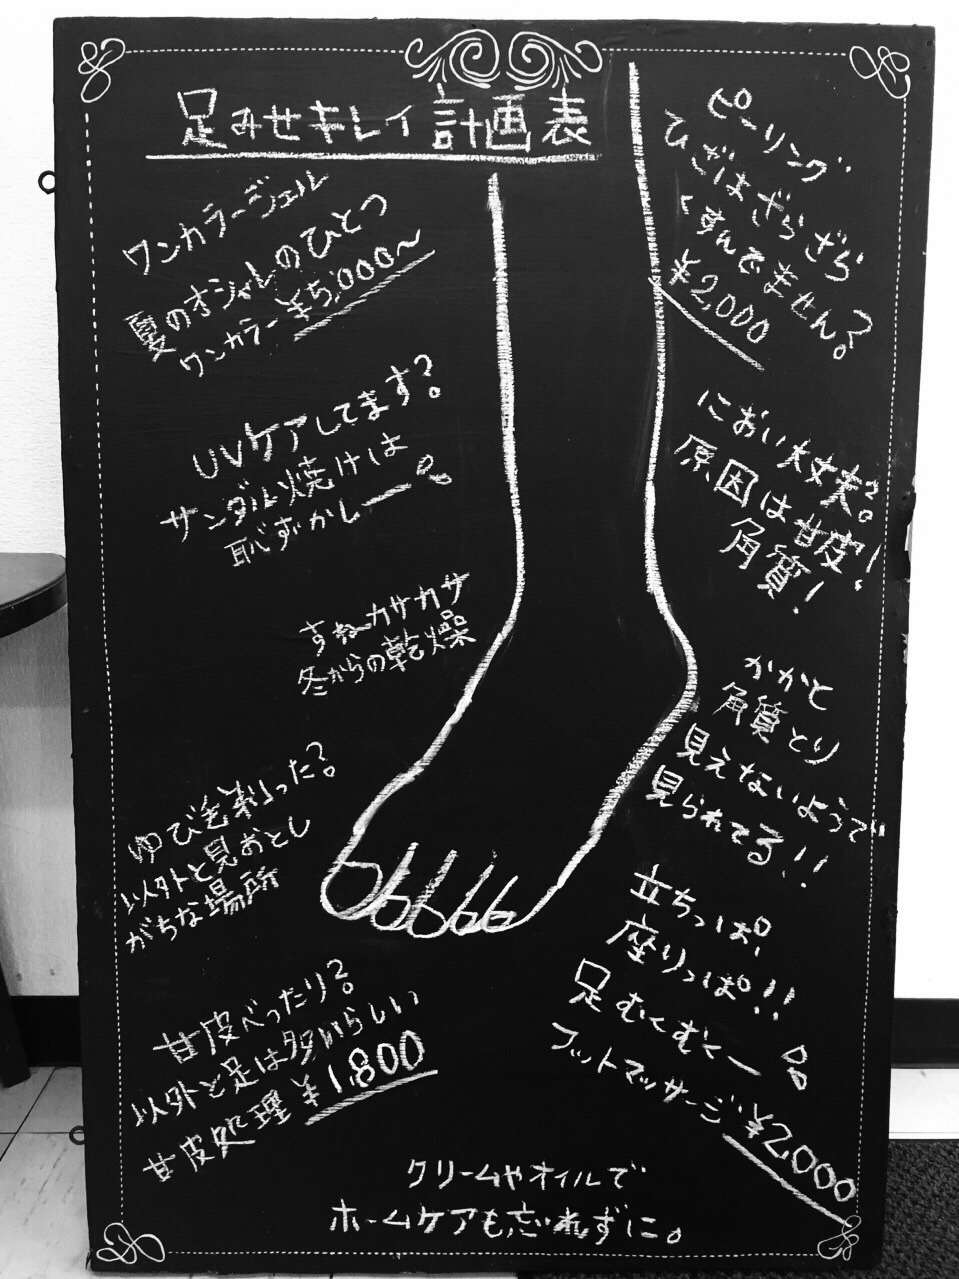 足みせキレイ計画表
ワンカラージェル
夏のオシャレのひとつ
ワンカラー ¥5,000〜
UVケアしてます?
サンダル焼けは
恥ずかしー。
すねーカサカサ
冬からの乾燥
ゆび毛剃った?
以外と見おとし
がちな場所
甘皮べったり?
以外と足は多いらしい
甘皮処理 ¥1,800
ピーリング
ひざはざらざら
くすんでません?
¥2,000
におい大丈夫?
原因は甘皮!
角質!
かかと
角質とり
見えないようで
見られてる!!
立ちっぱ!
座りっぱ!!
足むくむくー。
フットマッサージ ¥2,000
クリームやオイルで
ホームケアも忘れずに。